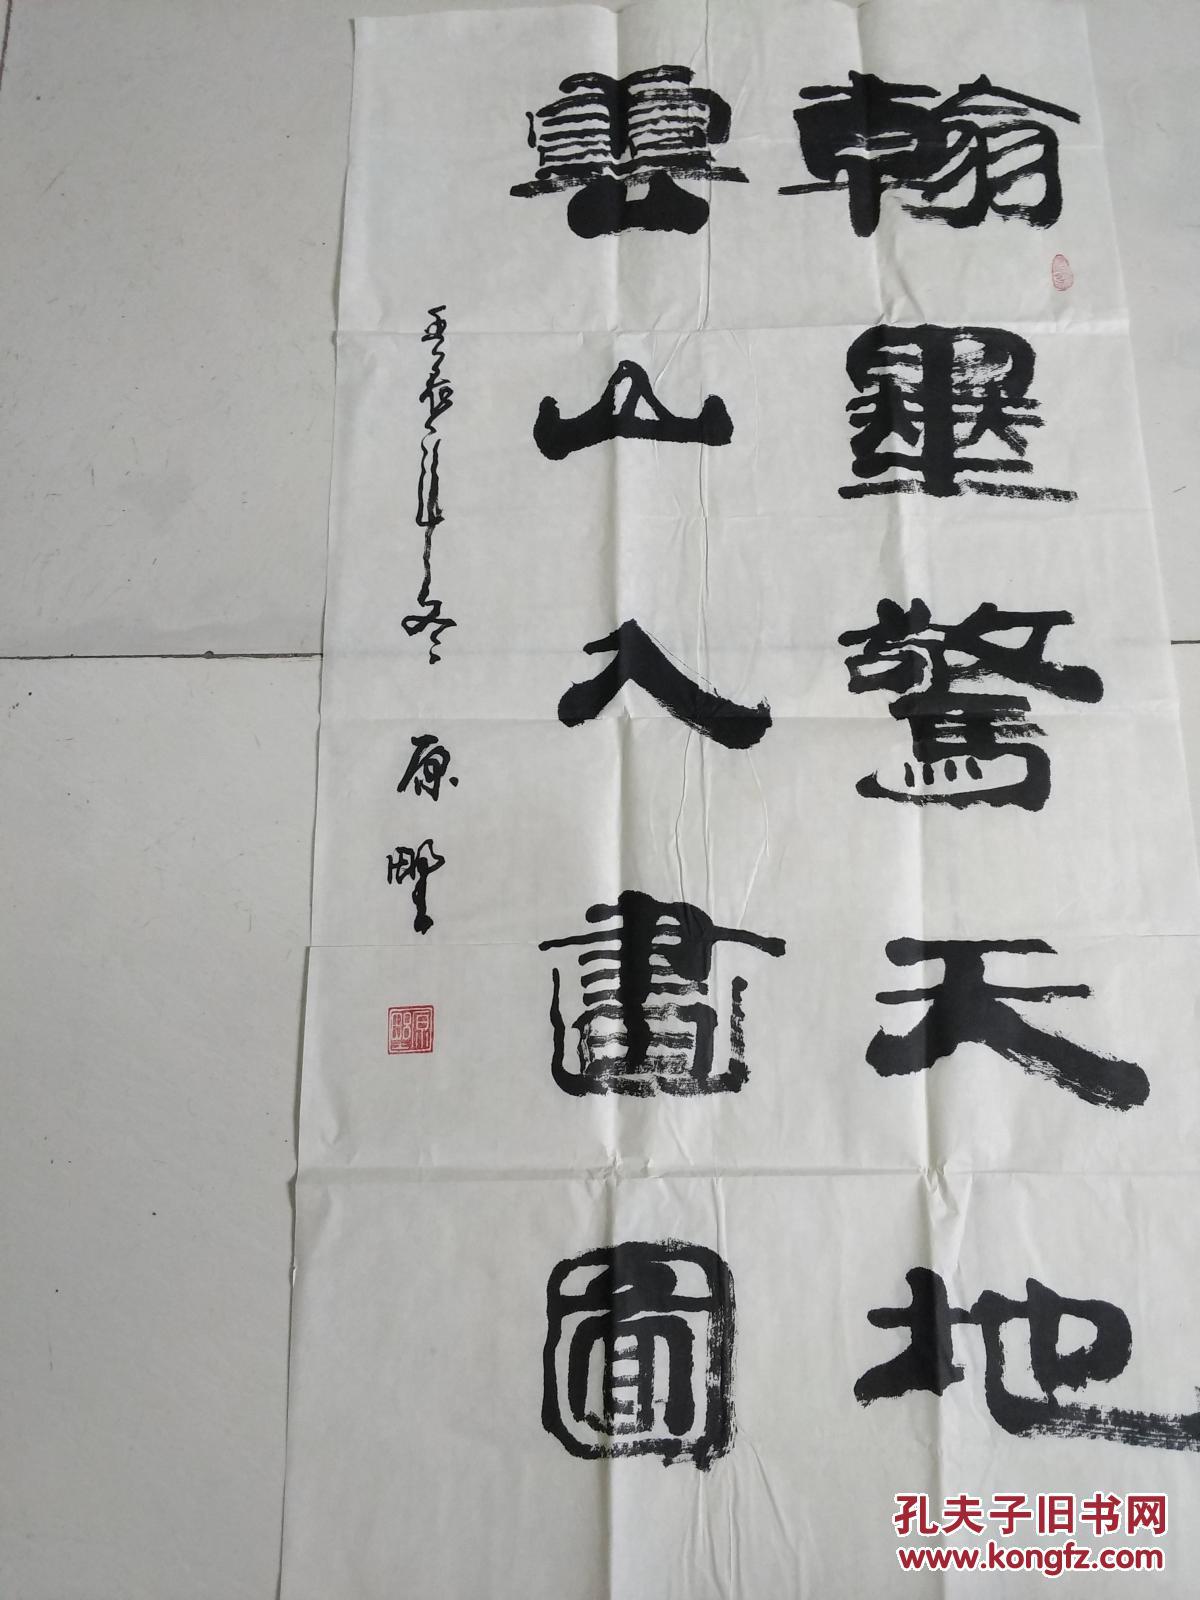 翰墨驚天地
雲山入畫圖
壬辰年冬
原野
原野
孔夫子旧书网
www.kongfz.com